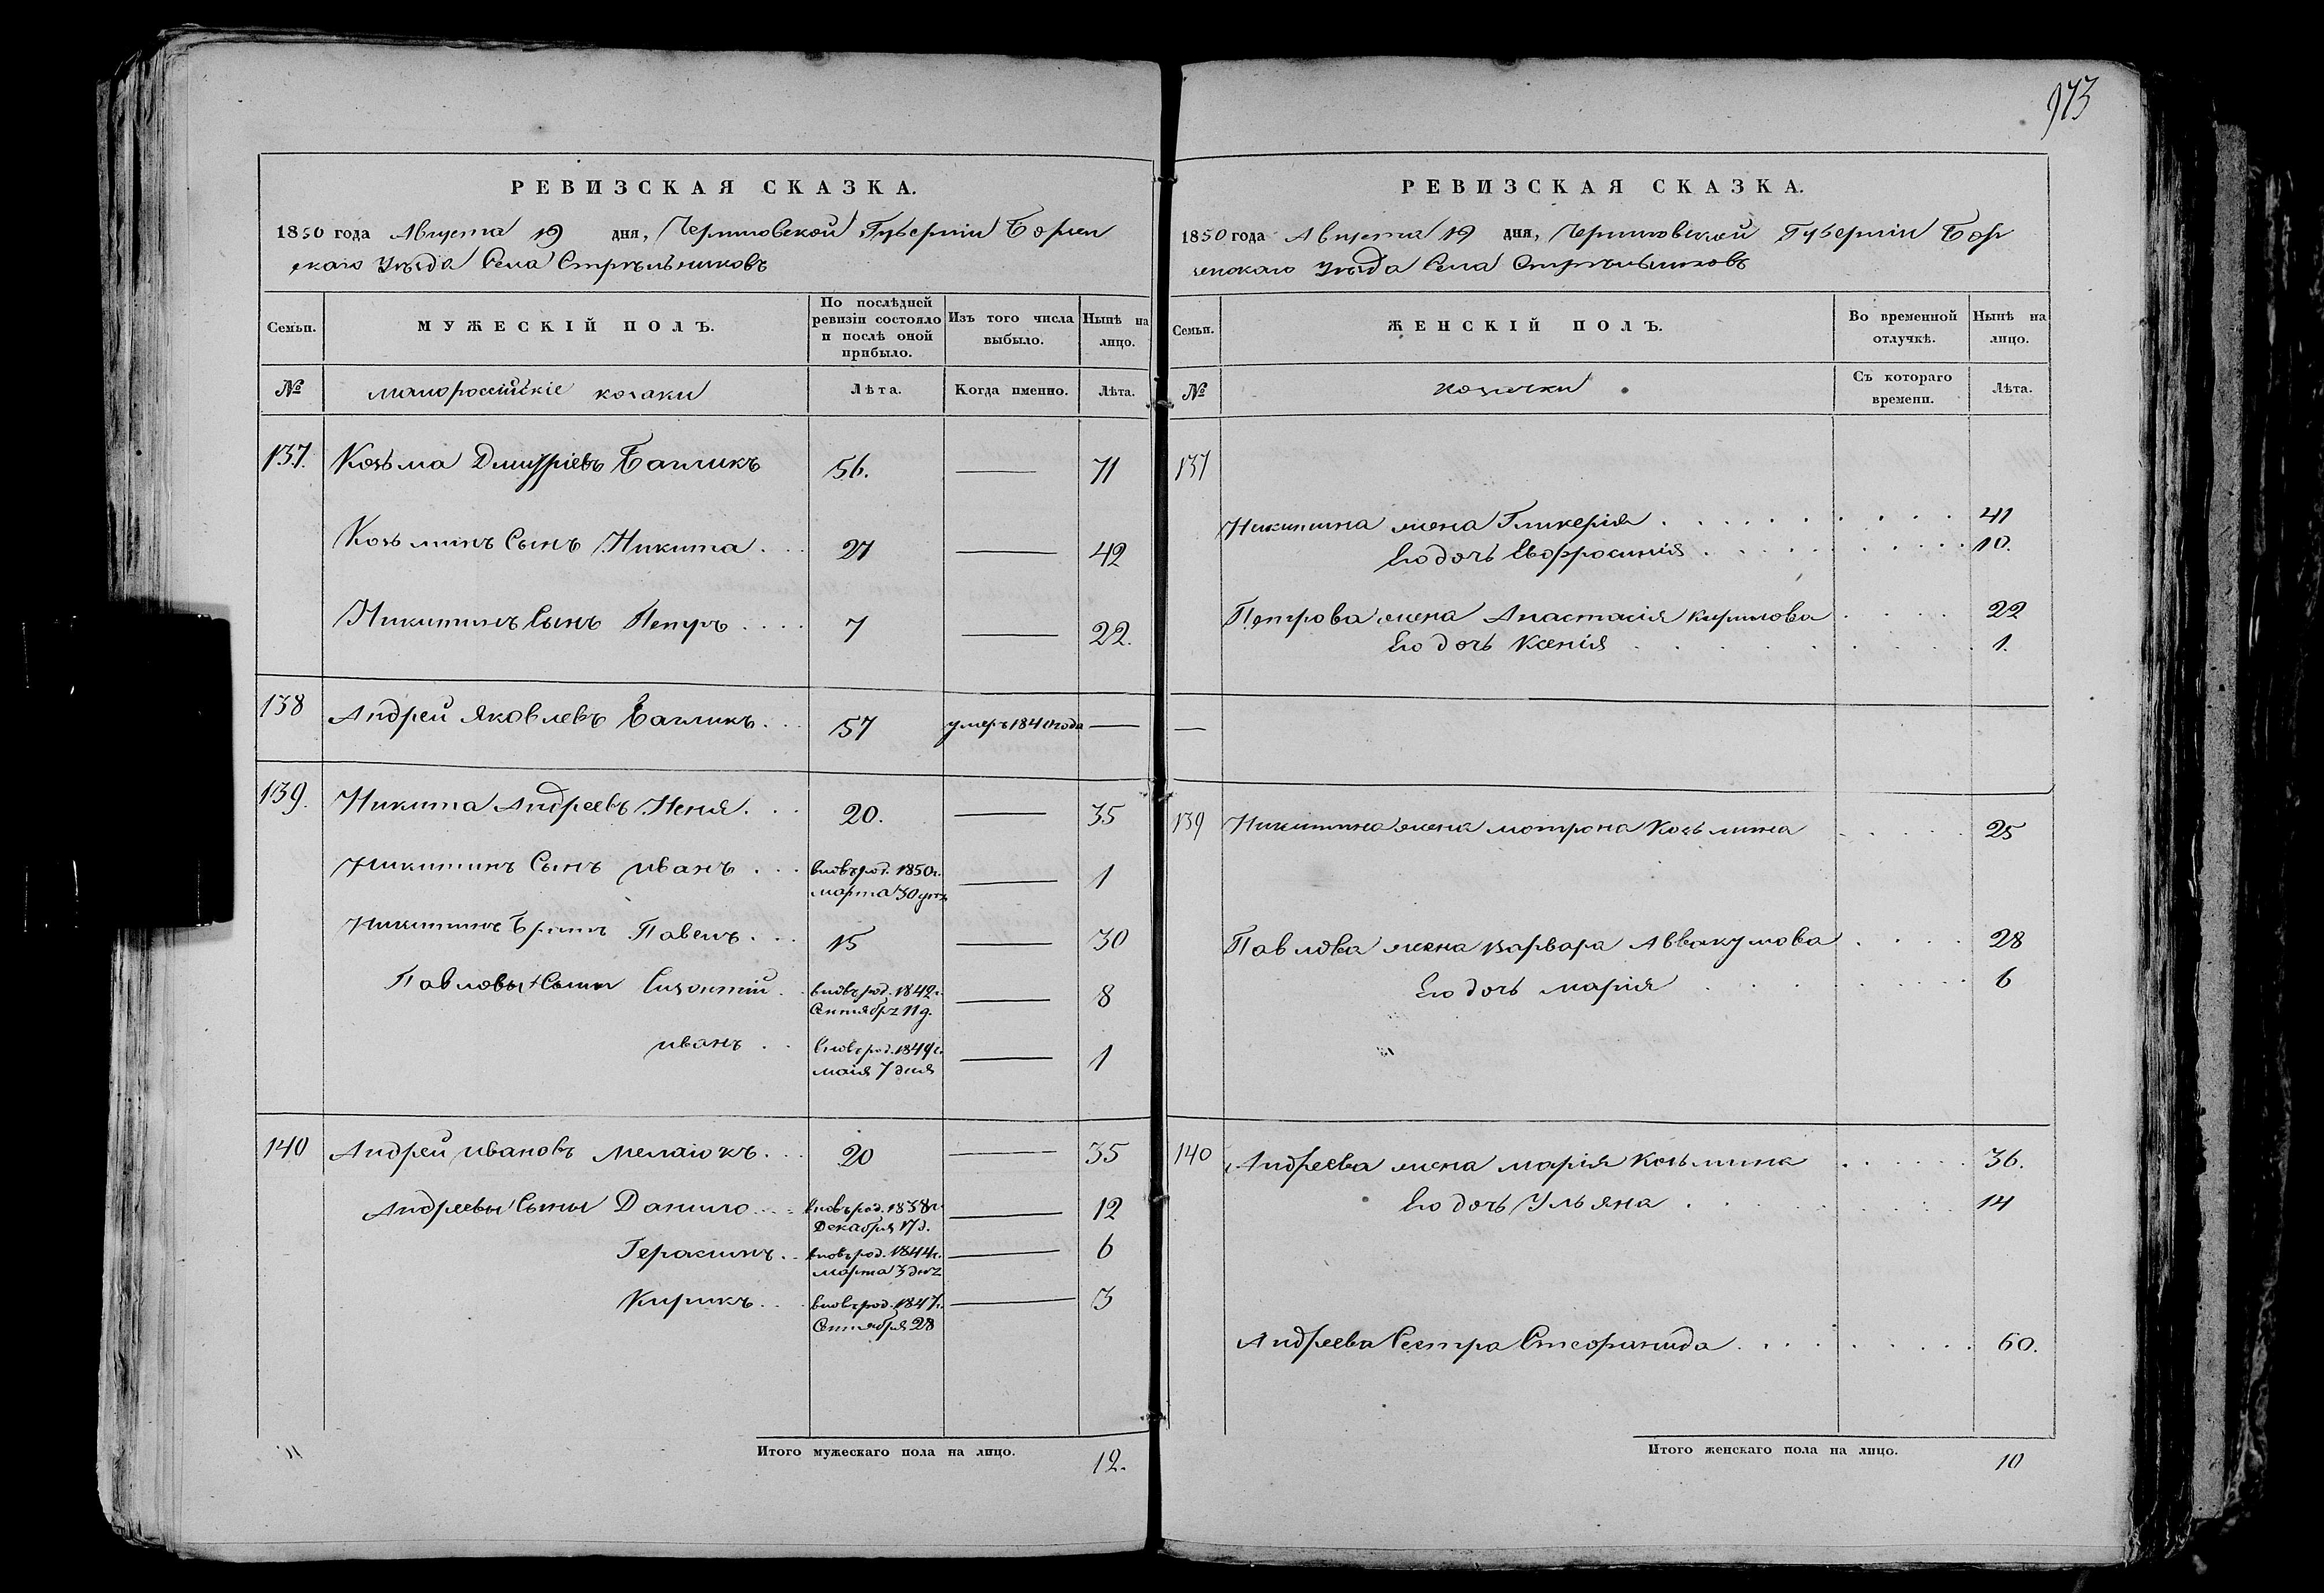 973
РЕВИЗСКАЯ СКАЗКА.
1850 года Августа 19 дня, Черниговской Губерніи Борзен
скаго Уѣзда Села Стрѣльниковъ
Семьи. МУЖЕСКІЙ ПОЛЪ. По послѣдней ревизіи состояло и послѣ оной прибыло. Изъ того числа выбыло. Нынѣ на лицо.
№ малороссійскіе козаки Лѣта. Когда именно. Лѣта.
137. Козьма Дмитріевъ Багликъ 56. — 71
Козьминъ Сынъ Никита 27 — 42
Никитинъ Сынъ Петръ 7 — 22.
138 Андрей Яковлевъ Багликъ 57 умеръ 184 года —
139. Никита Андреевъ Неня 20. — 35
Никитинъ Сынъ иванъ вновь род. 1850 г. — 1
марта 30
Никитинъ Братъ Павелъ 15 — 30
Павловы Сыны вновь род. 1842 г. — 8
Сентября 11 д.
иванъ вновь род. 1849 г. — 1
маія 7 дня
140 Андрей ивановъ 20 — 35
Андреевы Сыны Данило вновь род. 1838 г. — 12
Декабря 17 д.
Герасимъ вновь род. 1844 г. — 6
марта 3 дня
Кирикъ вновь род. 1847 г. — 3
Сентября 28
Итого мужескаго пола на лицо. 12.
РЕВИЗСКАЯ СКАЗКА.
1850 года Августа 19 дня, Черниговской Губерніи Бор
зенскаго Уѣзда Села Стрѣльниковъ
Семьи. ЖЕНСКІЙ ПОЛЪ. Во временной отлучкѣ. Нынѣ на лицо.
№ козачки Съ котораго времени. Лѣта.
137
Никитина жена Гликерія 41
Его дочь Евфросинія 10.
Петрова жена Анастасія Кирилова 22
Его дочь Ксенія 1.
—
139 Никитина жена мотрона Козьмина 25
Павлова жена варвара Аввакумова 28
Его дочь марія 6
140 Андреева жена марія Козьмина 36.
Его дочь Ульяна 14
Андреева Сестра 60.
Итого женскаго пола на лицо. 10